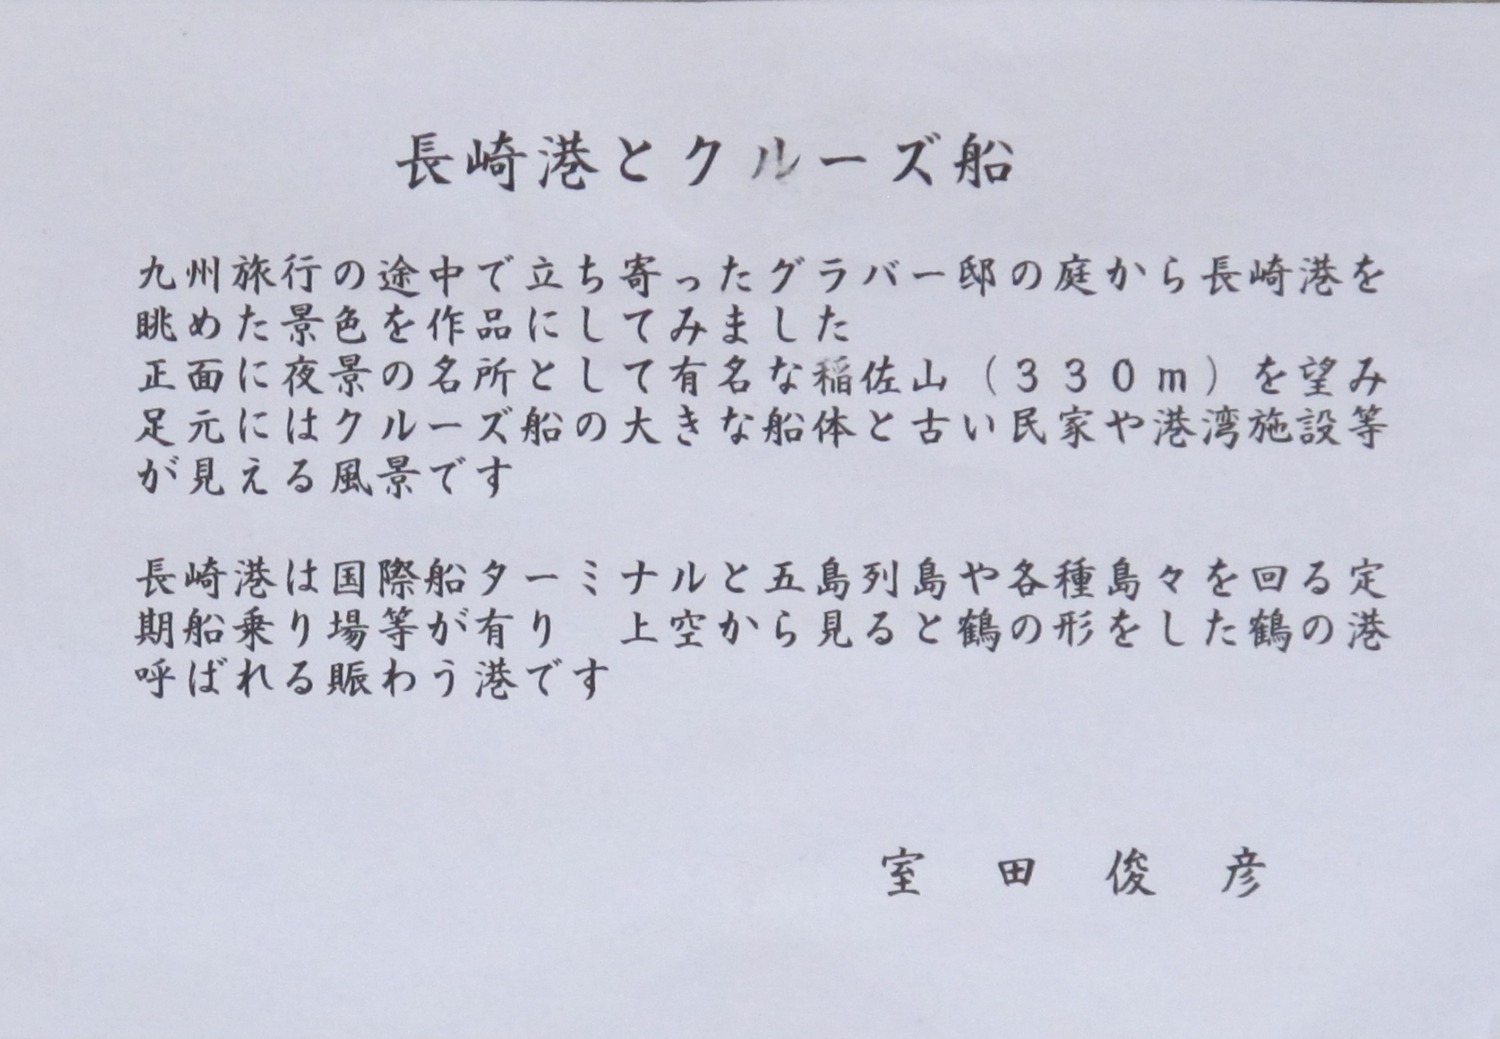 長崎港とクルーズ船
九州旅行の途中で立ち寄ったグラバー邸の庭から長崎港を
眺めた景色を作品にしてみました
正面に夜景の名所として有名な稲佐山（３３０ｍ）を望み
足元にはクルーズ船の大きな船体と古い民家や港湾施設等
が見える風景です
長崎港は国際船ターミナルと五島列島や各種島々を回る定
期船乗り場等が有り　上空から見ると鶴の形をした鶴の港
呼ばれる賑わう港です
室　田　俊　彦